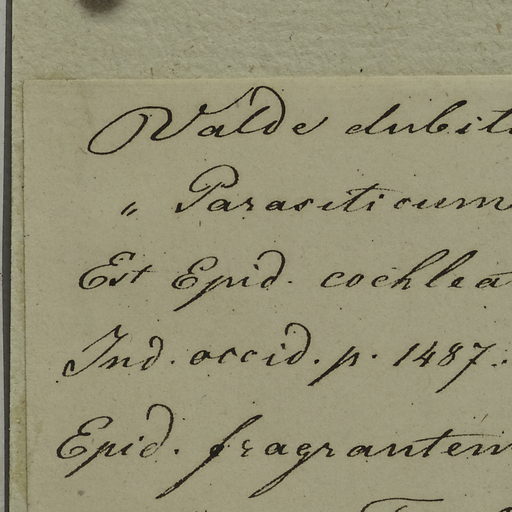 Valde dubit
„ Parasiticum
Est Epid. cochlea
Ind. occid. p. 1487.
Epid. fragrantem